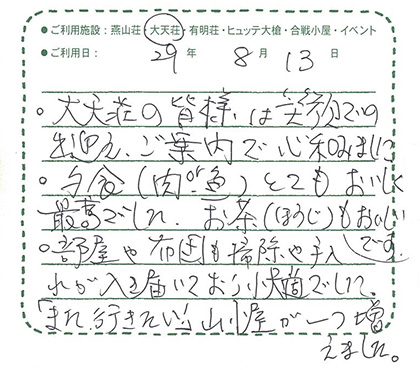 ●ご利用施設：燕山荘・大天荘・有明荘・ヒュッテ大槍・合戦小屋・イベント
●ご利用日： 29 年 8 月 13 日
○大天荘の皆様は笑顔での
お迎え、ご案内で心和みました
○夕食(肉or魚)とてもおいしく
最高でした。お茶(ほうじ)もおいしい
です。
○部屋や布団も掃除や手入
れが入き届いており快適でした。
「また行きたい!」山小屋が一つ増
えました。